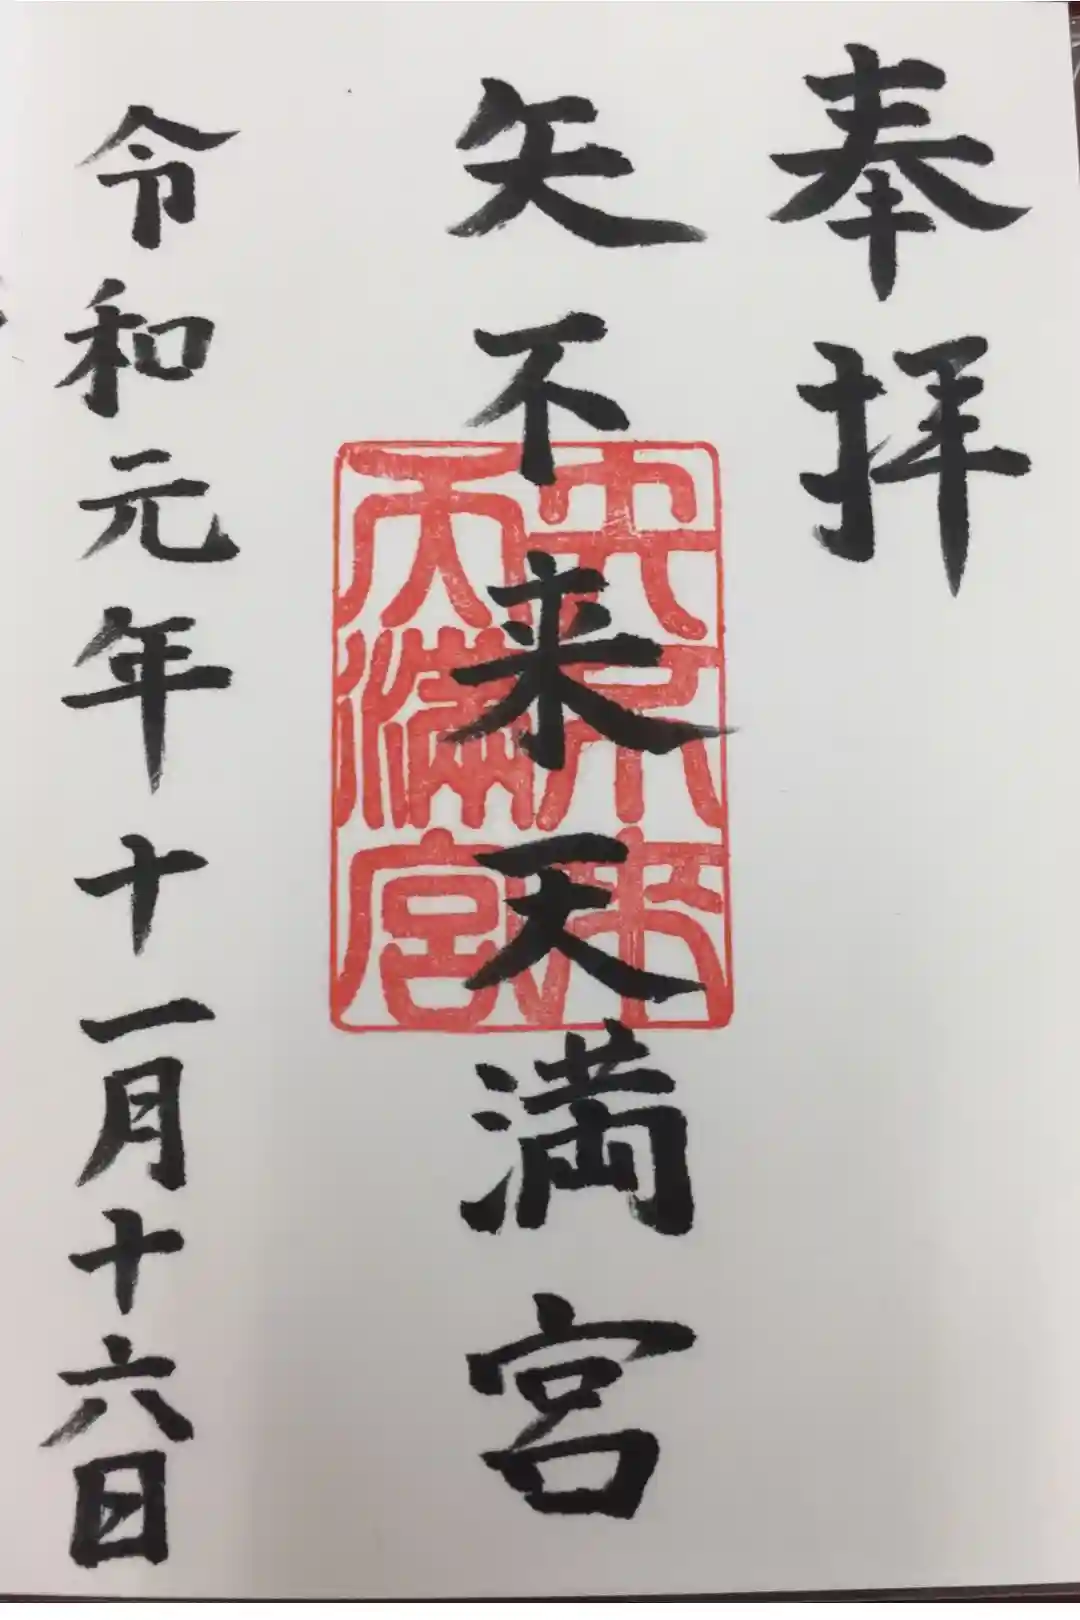 奉拝
矢不来天満宮
令和元年十一月十六日
矢不来
天満宮